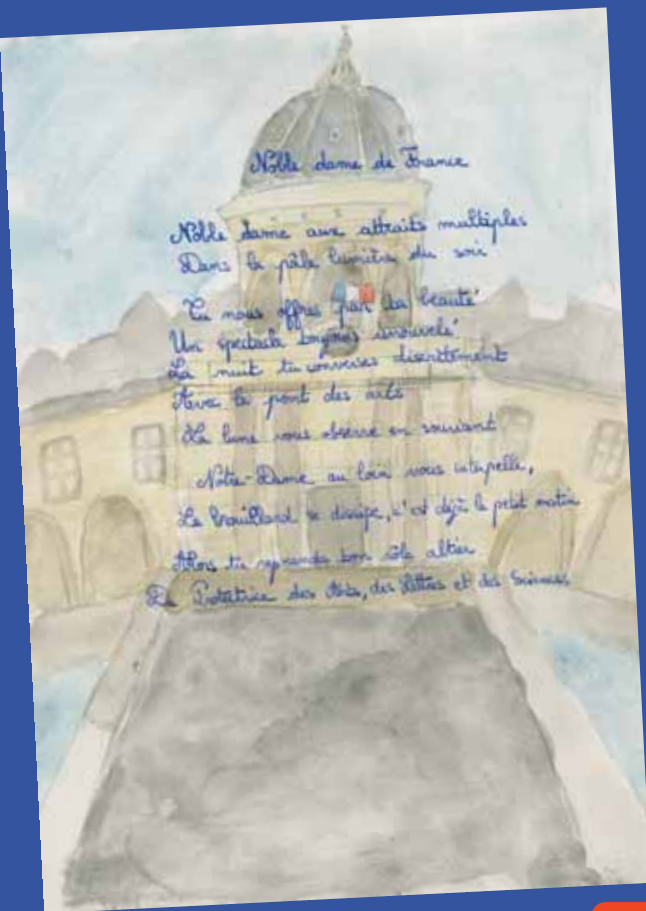 Noble dame de France
Noble dame aux attraits multiples
Dans la pâle lumière du soir
Tu nous offres par ta beauté
Un spectacle toujours renouvelé
La nuit tu converses discrètement
Avec le pont des arts
La lune vous observe en souriant
Notre-Dame au loin vous interpelle,
Le brouillard se dissipe, c'est déjà le petit matin
Alors tu reprends ton rôle altier
De Protectrice des Arts, des Lettres et des Sciences